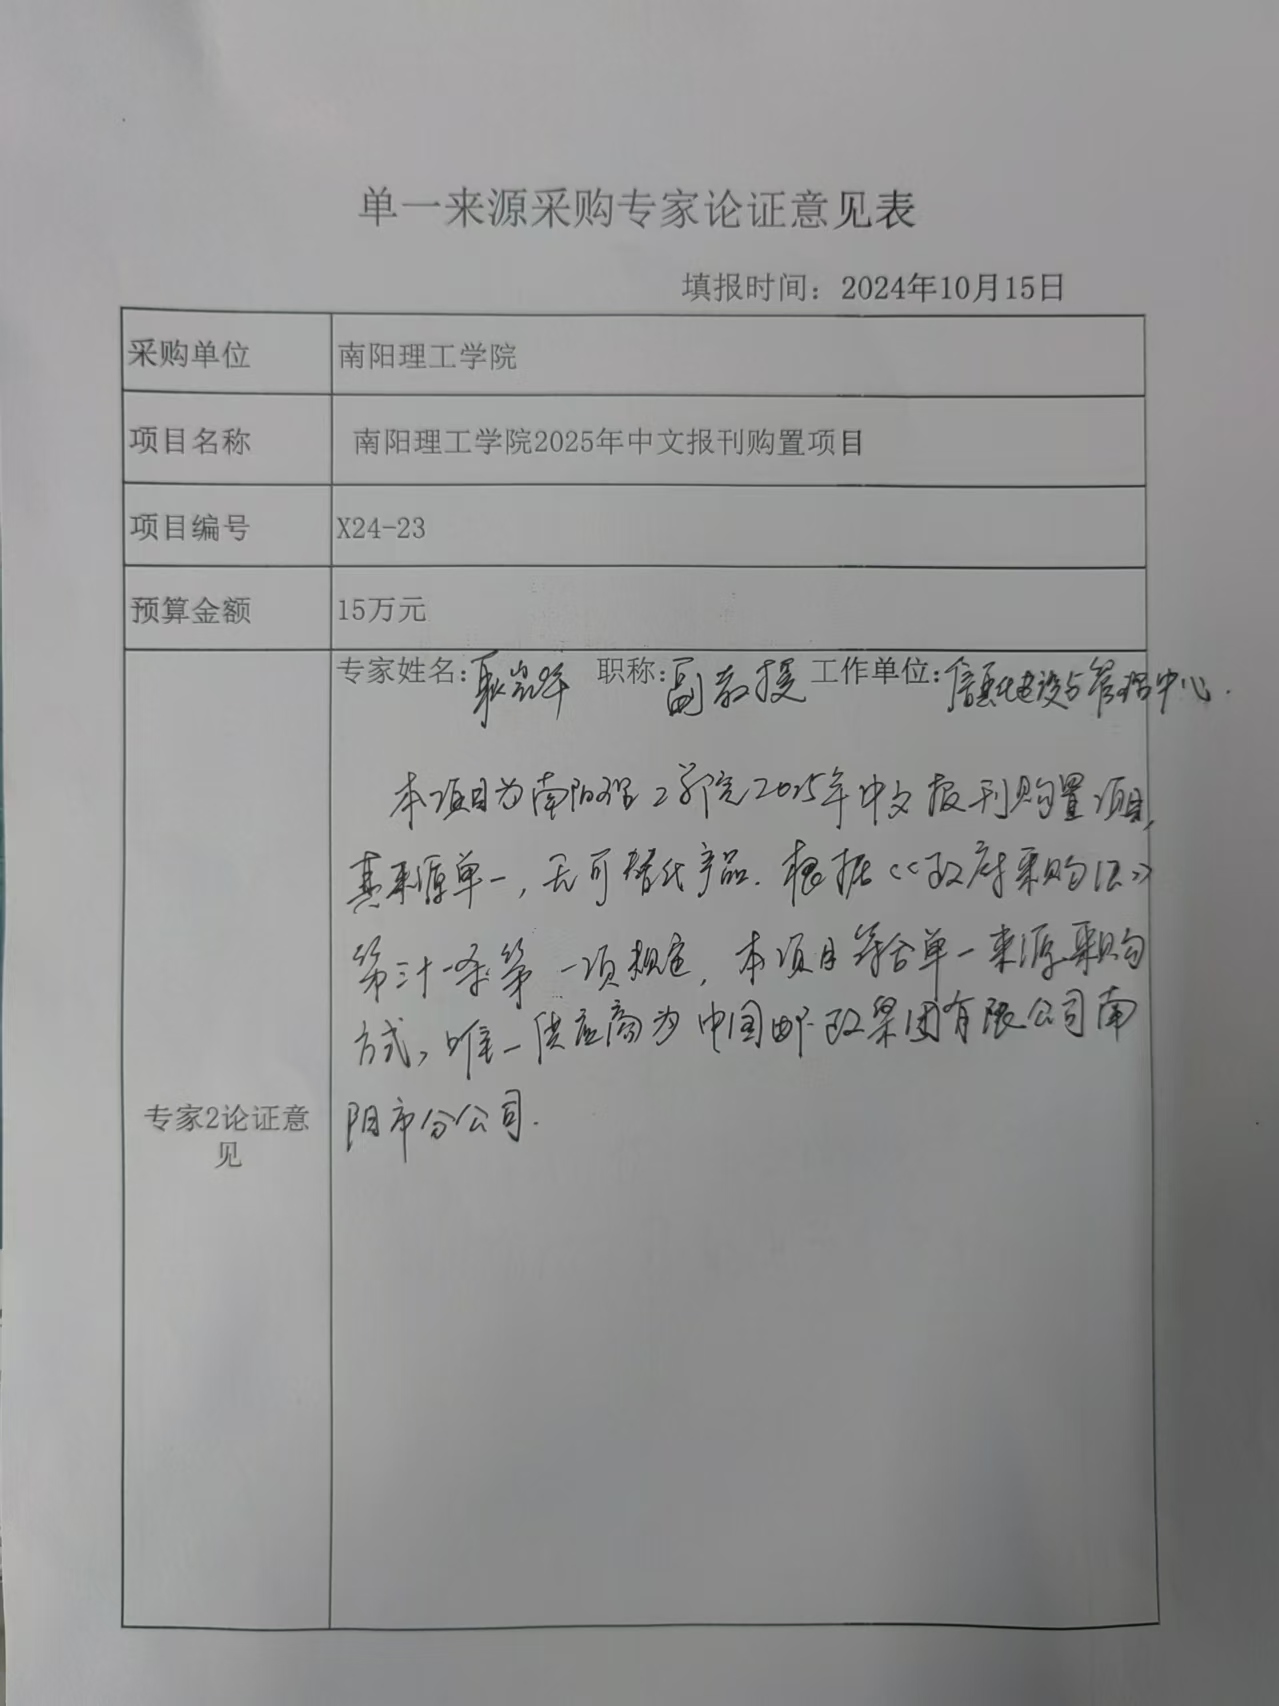 单一来源采购专家论证意见表
填报时间：2024年10月15日
采购单位 南阳理工学院
项目名称 南阳理工学院2025年中文报刊购置项目
项目编号 X24-23
预算金额 15万元
专家姓名：耿 职称：副教授 工作单位：信息化建设与管理中心.
本项目为南阳理工学院2025年中文报刊购置项目,
其来源单一，无可替代产品. 根据《政府采购法》
第三十一条第一项规定，本项目符合单一来源采购
方式，唯一供应商为中国邮政集团有限公司南
阳市分公司.
专家2论证意
见